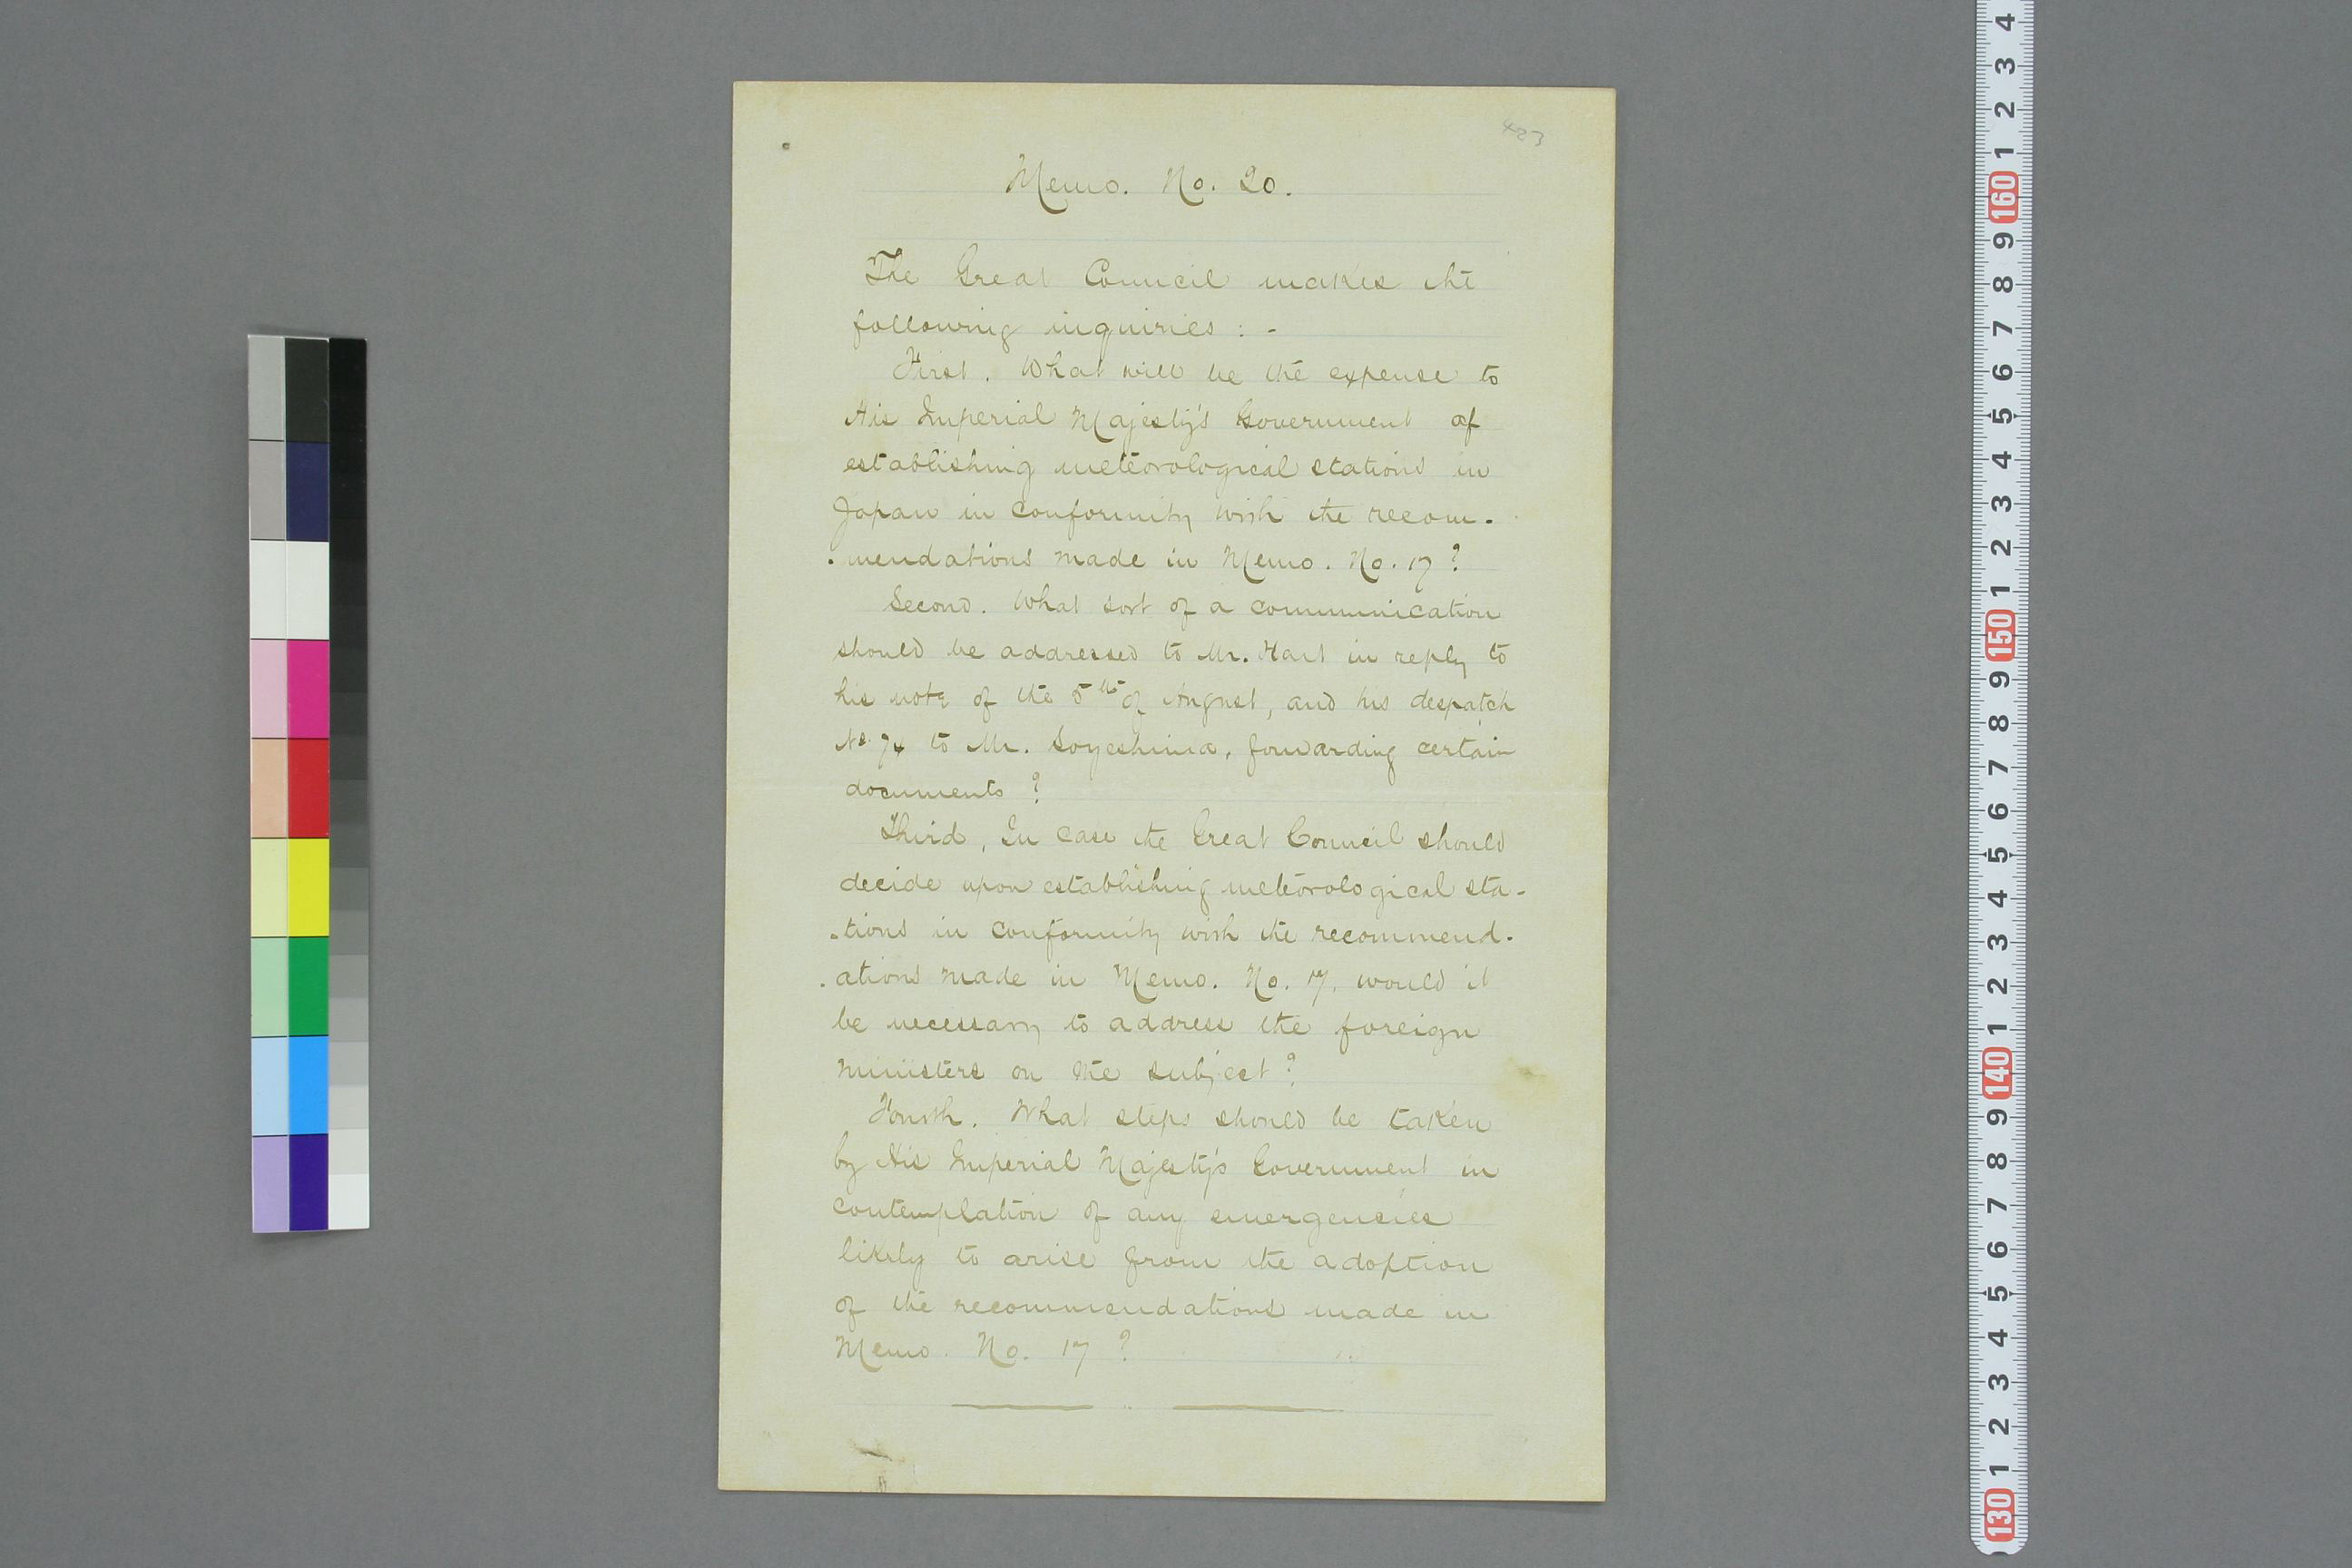 423
Memo. No. 20.
The Great Council makes the
following inquiries : -
First. What will be the expense to
His Imperial Majesty's Government of
establishing meteorological stations in
Japan in conformity with the recom-
-mendations made in Memo. No. 17 ?
Second. What sort of a communication
should be addressed to Mr. Hart in reply to
his note of the 5th of August, and his despatch
No. 74 to Mr. Soyeshima, forwarding certain
documents ?
Third, In case the Great Council should
decide upon establishing meteorological sta-
-tions in conformity with the recommend-
-ations made in Memo. No. 17, would it
be necessary to address the foreign
ministers on the subject ?
Fourth. What steps should be taken
by His Imperial Majesty's Government in
contemplation of any emergencies
likely to arise from the adoption
of the recommendations made in
Memo. No. 17 ?
4
3
2
1
160
9
8
7
6
5
4
3
2
1
150
9
8
7
6
5
4
3
2
1
140
9
8
7
6
5
4
3
2
1
130